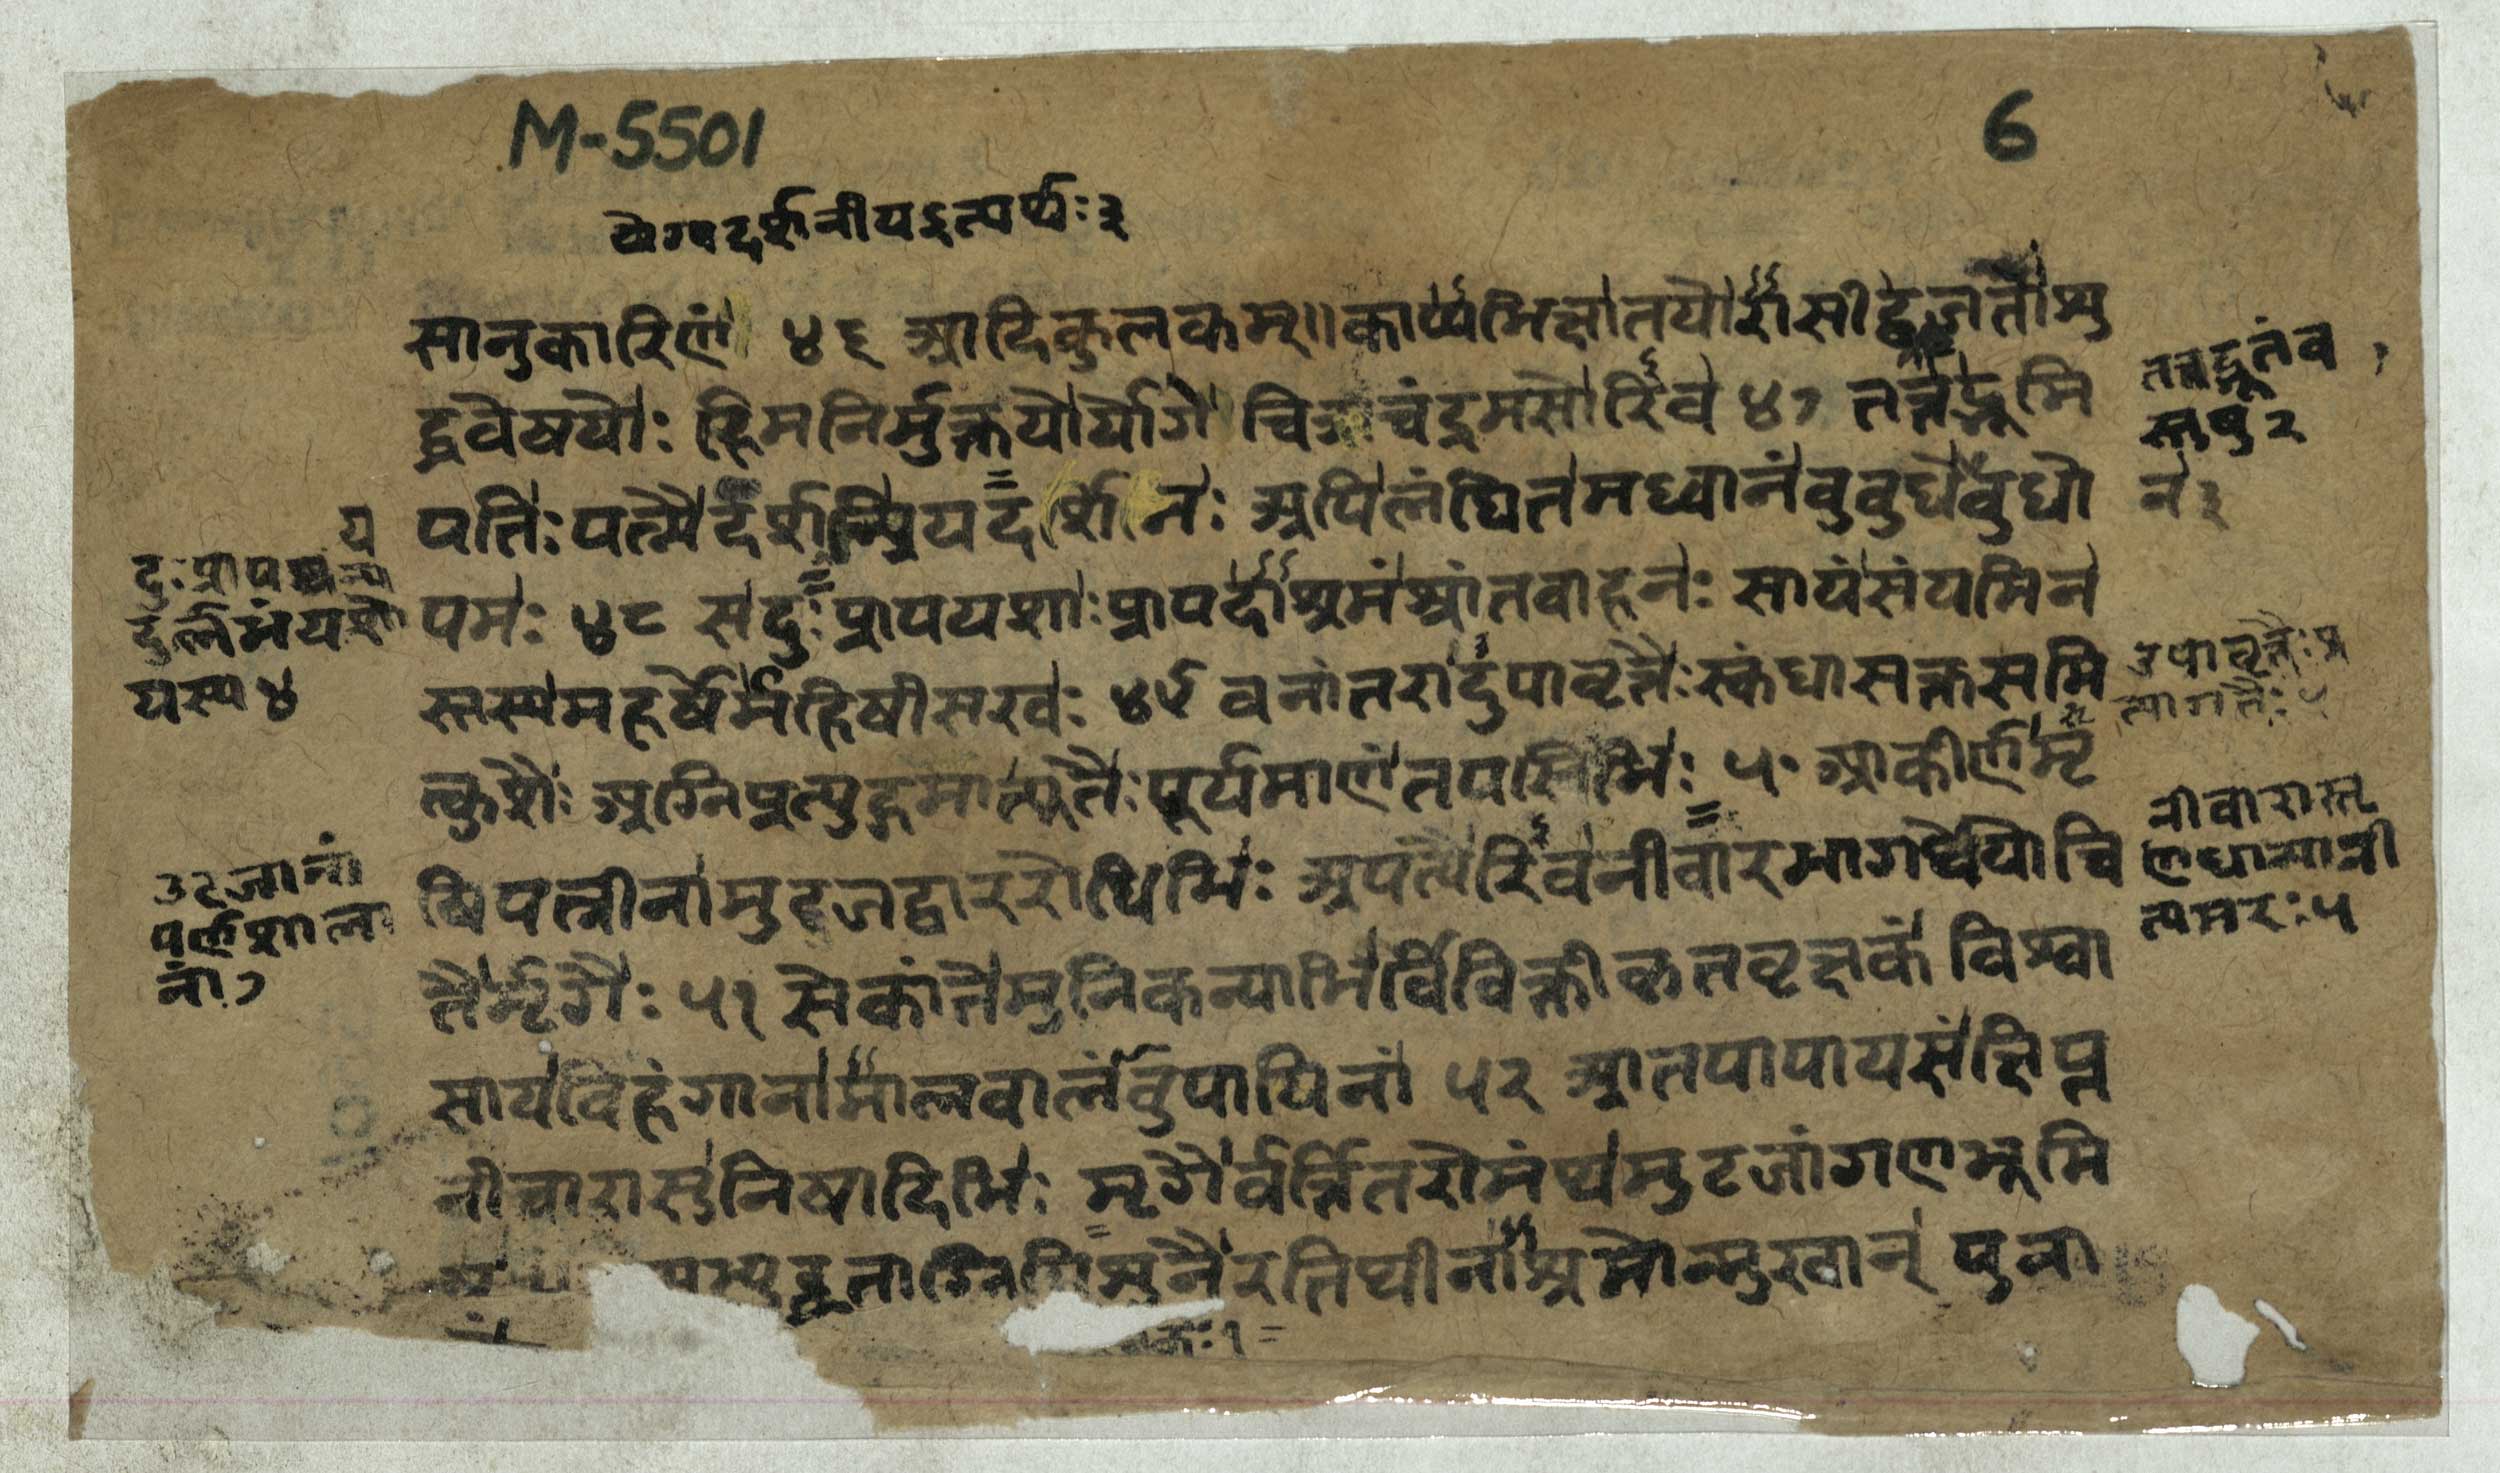 M-5501
6
योग्यदर्शनीयइत्यर्थः ३
सानुकारिणां ४६ आदिकुलकम्॥ काप्यभिख्यातयोरासीद्व्रजतोःशु
द्धवेषयोः हिमनिर्मुक्तयोर्योगे चित्राचंद्रमसोरिव ४७ तत्तद्भूमि
पतिः पत्न्यैदर्शयन्प्रियदर्शनः अपिलंघितमध्वानंबुबुधेनबुधो
पमः ४८ सदुःप्रापयशाःप्रापदाश्रमंश्रांतवाहनः सायंसंयमिन
स्तस्यमहर्षेर्महिषीसखः ४९ वनांतरादुपावृत्तैःस्कंधासक्तसमि
त्कुशैः अग्निप्रत्युद्गमात्पूतैःपूर्यमाणंतपस्विभिः ५० आकीर्णमृ
षिपत्नीनामुटजद्वाररोधिभिः अपत्यैरिवनीवारभागधेयोचि
तैर्मृगैः ५१ सेकांतेमुनिकन्याभिर्विविक्तीकृतवृक्षकं विश्वा
सायविहंगानामालवालांबुपायिनां ५२ आतपापायसंक्षिप्त
नीवारासुनिषादिभिः मृगैर्वर्त्तितरोमंथमुटजांगणभूमि
भ्युद्धृताग्निपिशुनैरतिथीनाश्रमोन्मुखान् पुना
तत्तद्भूतंव
स्तुषु २
न ३
य
दुःप्राप
दुर्लभंयशो
यस्य ४
उपावृत्तैःप्र
त्यागतैः ५
नीवारास्तृ
णधान्यानी
त्यमरः ५
उटजानां
पर्णशाला
नां ७
कः १